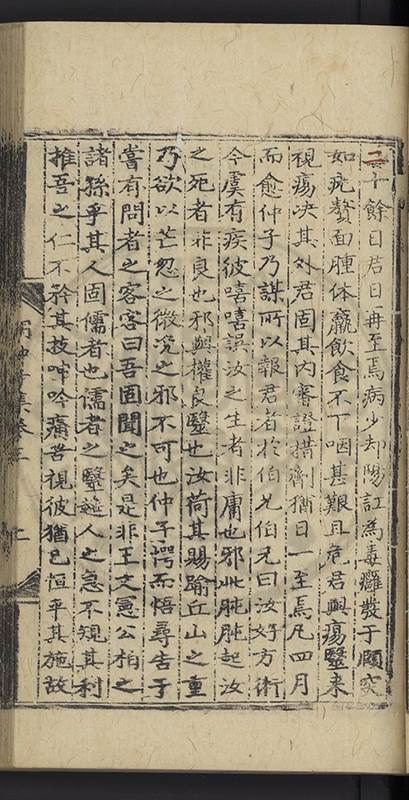 二十餘日君日再至焉病少却陽訌為毒癰發于頤突
如疣贅面腫体羸飲食不下咽甚艱且危君與瘍醫来
視瘍决其外君固其内審證措劑猶日一至焉凡四月
而愈仲子乃謀所以報君者於伯兄伯兄曰汝好方術
今虞有疾彼嘻嘻誤汝之生者非庸也邪此肫肫起汝
之死者非良也邪與權良醫也汝荷其賜踰丘山之重
乃欲以芒忽之微况之邪不可也仲子愕而悟尋告于
嘗有問者之客客曰吾固聞之矣是非王文憲公柏之
諸孫乎其人固儒者也儒者之醫趍人之急不覬其利
推吾之仁不矜其技呻吟痛苦視彼猶己恒乎其施故
集卷三
二